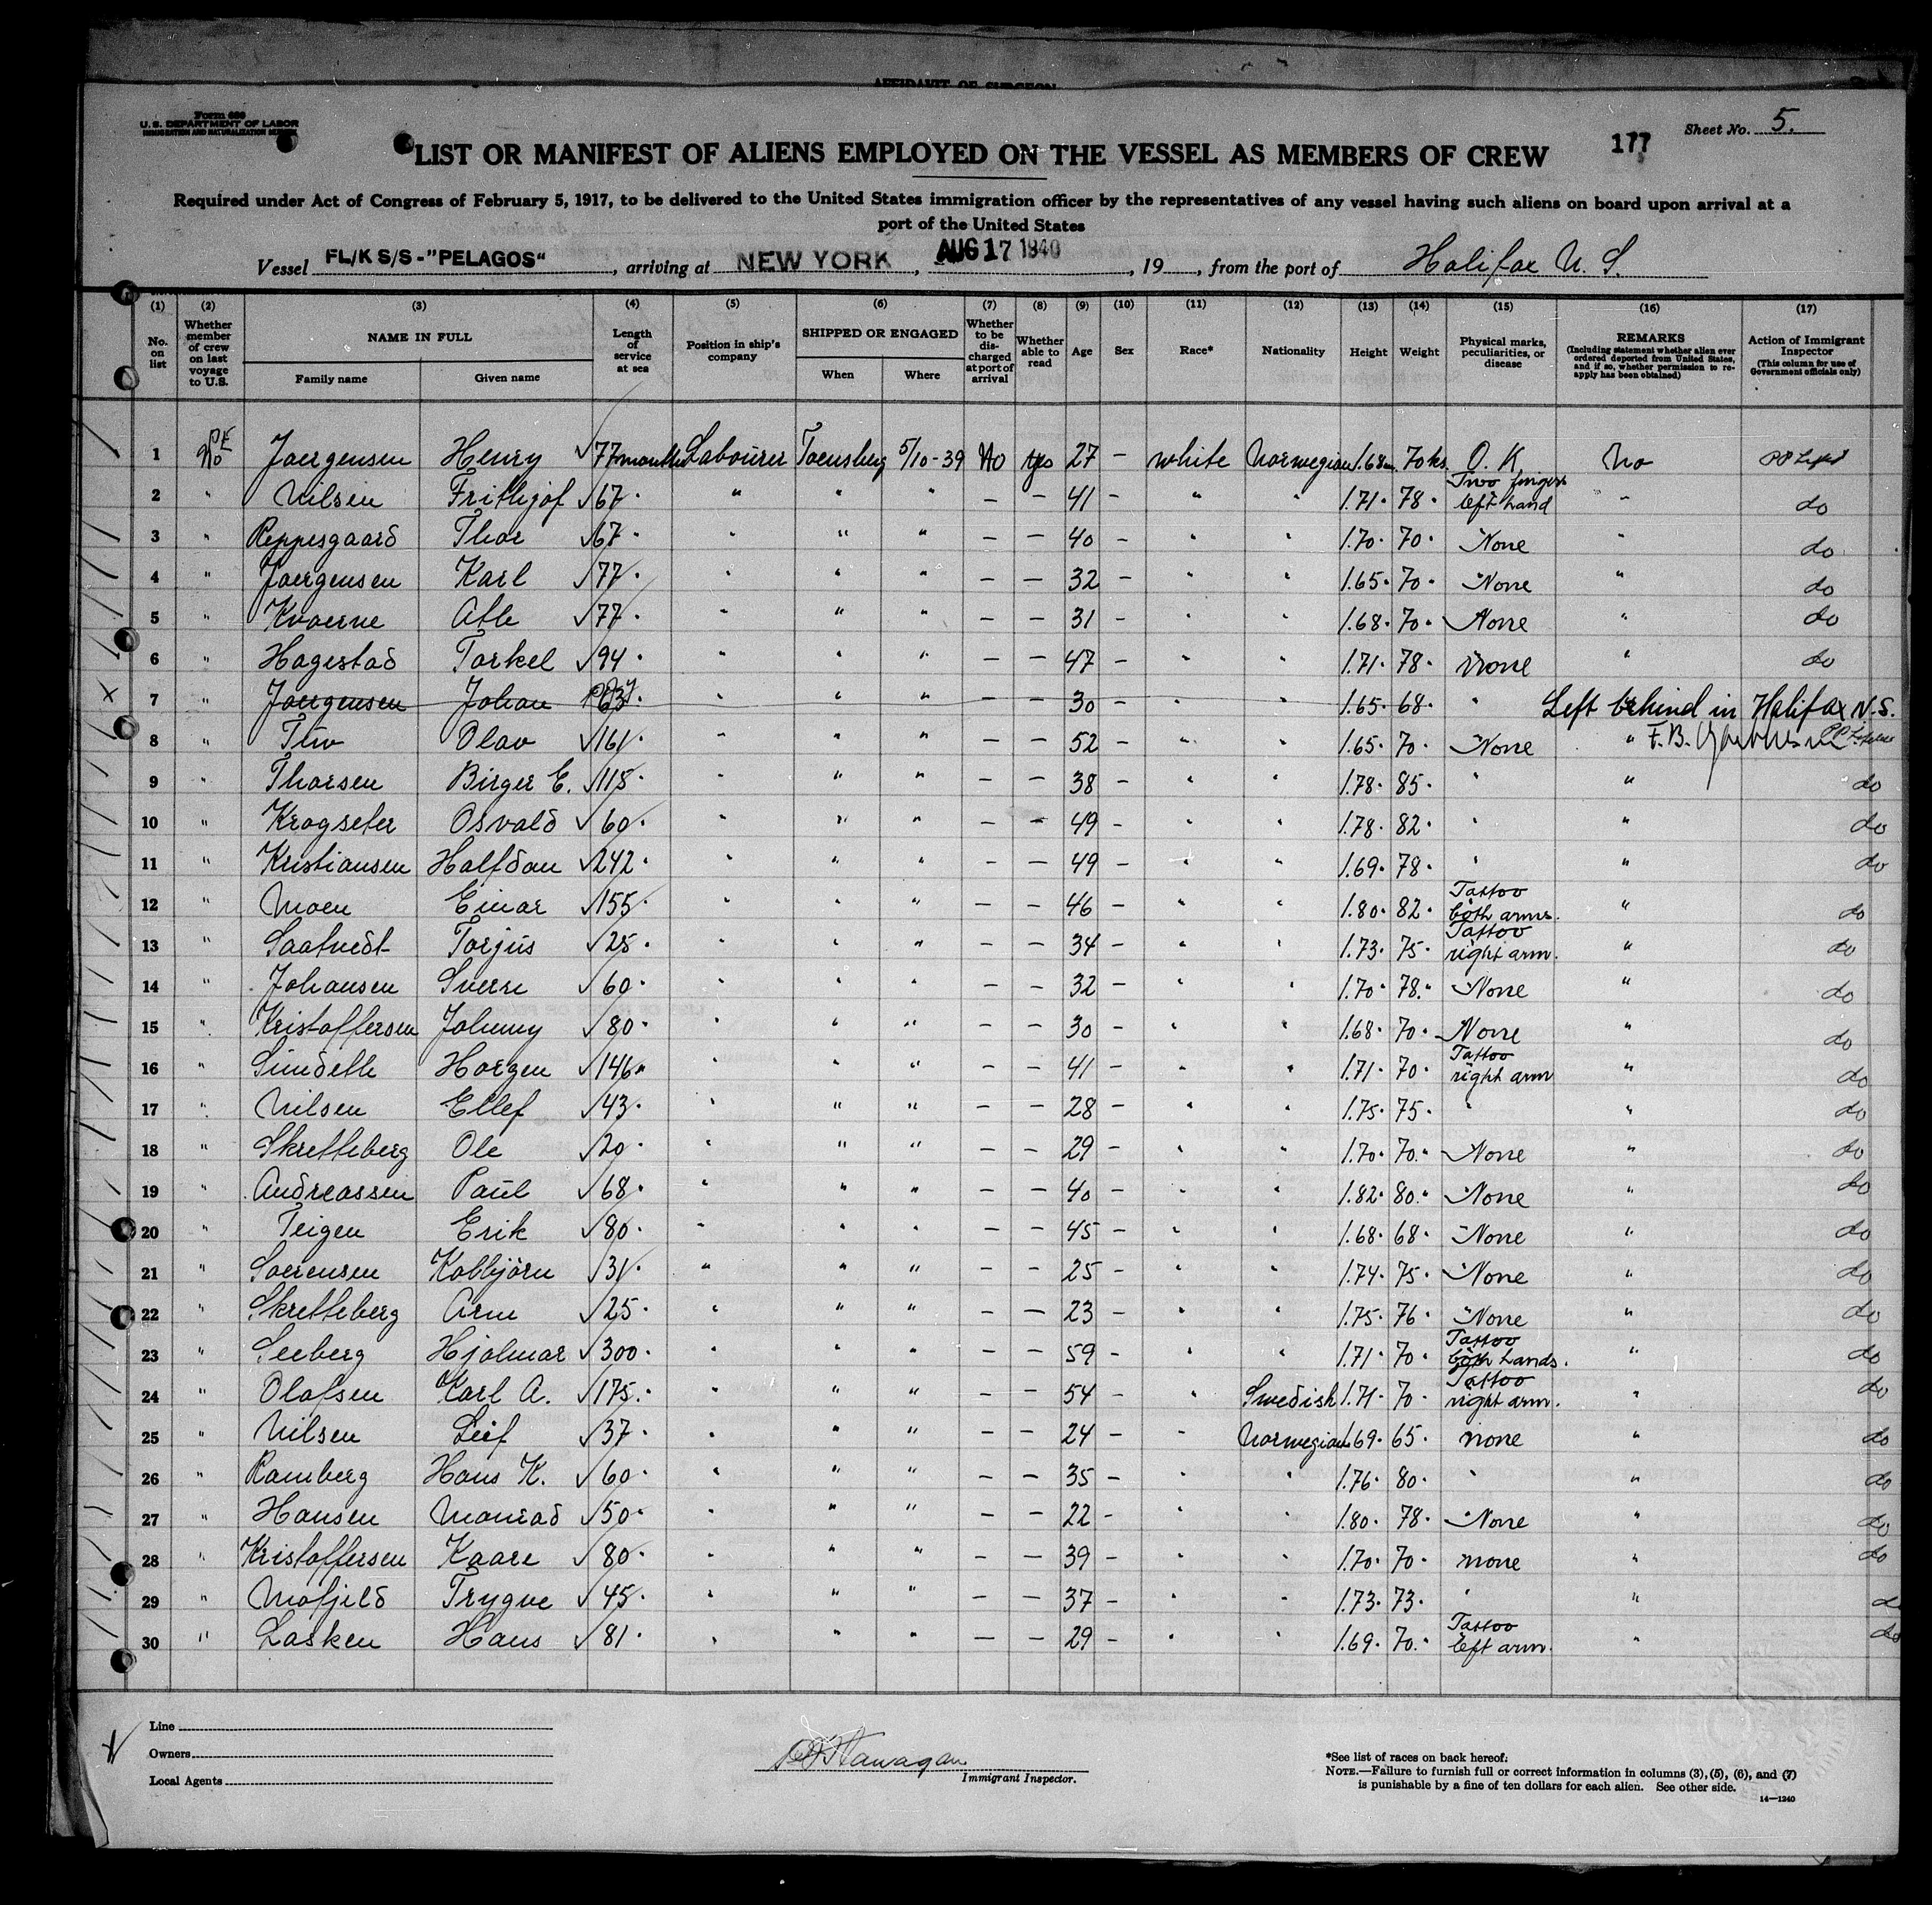 AFFIDAVIT OF SURGEON
Form 689
U. S. DEPARTMENT OF LABOR
IMMIGRATION AND NATURALIZATION SERVICE
Sheet No. 5.
177
LIST OR MANIFEST OF ALIENS EMPLOYED ON THE VESSEL AS MEMBERS OF CREW
Required under Act of Congress of February 5, 1917, to be delivered to the United States immigration officer by the representatives of any vessel having such aliens on board upon arrival at a
port of the United States
Vessel FL/K S/S-"PELAGOS", arriving at NEW YORK, AUG 17 1940, 19 , from the port of Halifax N. S.
(1) (2) (3) (4) (5) (6) (7) (8) (9) (10) (11) (12) (13) (14) (15) (16) (17)
No. on list
Whether member of crew on last voyage to U.S.
NAME IN FULL
Family name
Given name
Length of service at sea
Position in ship's company
SHIPPED OR ENGAGED
When
Where
Whether to be discharged at port of arrival
Whether able to read
Age
Sex
Race*
Nationality
Height
Weight
Physical marks, peculiarities, or disease
REMARKS
(Including statement whether alien ever ordered deported from United States, and if so, whether permission to re-apply has been obtained)
Action of Immigrant Inspector
(This column for use of Government officials only)
1 No Joergensen Henry √ 77 months Labourer Toensberg 5/10-39 No yes 27 - white Norwegian 1.68 m. 70 ks. O. K. No
2 " Nilsen Frithjof √ 67 " " " " - - 41 - " " 1.71 " 78 " Two fingers left hand " do
3 " Reppesgaard Thor √ 67 " " " " - - 40 - " " 1.70 " 70 " None " do
4 " Joergensen Karl √ 77 " " " " - - 32 - " " 1.65 " 70 " None " do
5 " Kvaerne Atle √ 77 " " " " - - 31 - " " 1.68 " 70 " None " do
6 " Hagestad Torkel √ 94 " " " " - - 47 - " " 1.71 " 78 " None " do
x 7 " Joergensen Johan " " " " - - 30 - " " 1.65 " 68 " " Left behind in Halifax N.S.
8 " Olav √ 161 " " " " - - 52 - " " 1.65 " 70 " None " F. B.
9 " Thorsen Birger E. √ 118 " " " " - - 38 - " " 1.78 " 85 " " " do
10 " Krogseter Osvald √ 60 " " " " - - 49 - " " 1.78 " 82 " " " do
11 " Kristiansen Halfdan √ 242 " " " " - - 49 - " " 1.69 " 78 " " " do
12 " Moen Einar √ 155 " " " " - - 46 - " " 1.80 " 82 " Tattoo both arms. " do
13 " Saatvedt Torjus √ 25 " " " " - - 34 - " " 1.73 " 75 " Tattoo right arm. " do
14 " Johansen Sverre √ 60 " " " " - - 32 - " " 1.70 " 78 " None " do
15 " Kristoffersen Johnny √ 80 " " " " - - 30 - " " 1.68 " 70 " None " do
16 " Sundelle Horgen √ 146 " " " " - - 41 - " " 1.71 " 70 " Tattoo right arm " do
17 " Nilsen Ellef √ 43 " " " " - - 28 - " " 1.75 " 75 " " " do
18 " Skretteberg Ole √ 20 " " " " - - 29 - " " 1.70 " 70 " None " do
19 " Andreassen Paul √ 68 " " " " - - 40 - " " 1.82 " 80 " None " do
20 " Teigen Erik √ 80 " " " " - - 45 - " " 1.68 " 68 " None " do
21 " Soerensen Kolbjörn √ 31 " " " " - - 25 - " " 1.74 " 75 " None " do
22 " Skretteberg Arne √ 25 " " " " - - 23 - " " 1.75 " 76 " None " do
23 " Seeberg Hjalmar √ 300 " " " " - - 59 - " " 1.71 " 70 " Tattoo both hands. " do
24 " Olafsen Karl A. √ 175 " " " " - - 54 - " Swedish 1.71 " 70 " Tattoo right arm. " do
25 " Nilsen Leif √ 37 " " " " - - 24 - " Norwegian 1.69 " 65 " none " do
26 " Ramberg Hans K. √ 60 " " " " - - 35 - " " 1.76 " 80 " " " do
27 " Hansen Monrad √ 50 " " " " - - 22 - " " 1.80 " 78 " None " do
28 " Kristoffersen Kaare √ 80 " " " " - - 39 - " " 1.70 " 70 " none " do
29 " Mofjeld Trygve √ 45 " " " " - - 37 - " " 1.73 " 73 " " " do
30 " Lasken Hans √ 81 " " " " - - 29 - " " 1.69 " 70 " Tattoo left arm. " do
Line
Owners
Local Agents
Immigrant Inspector.
*See list of races on back hereof.
NOTE.—Failure to furnish full or correct information in columns (3), (5), (6), and (7)
is punishable by a fine of ten dollars for each alien. See other side.
14—1240